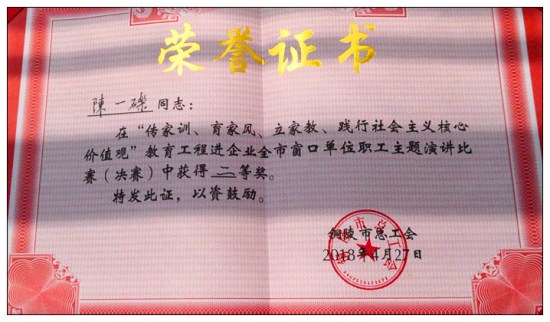 荣誉证书
陳一礫 同志：
在“传家训、育家风、立家教、践行社会主义核心
价值观”教育工程进企业全市窗口单位职工主题演讲比
赛（决赛）中获得 二 等奖。
特发此证，以资鼓励。
铜陵市总工会
2018年4月27日